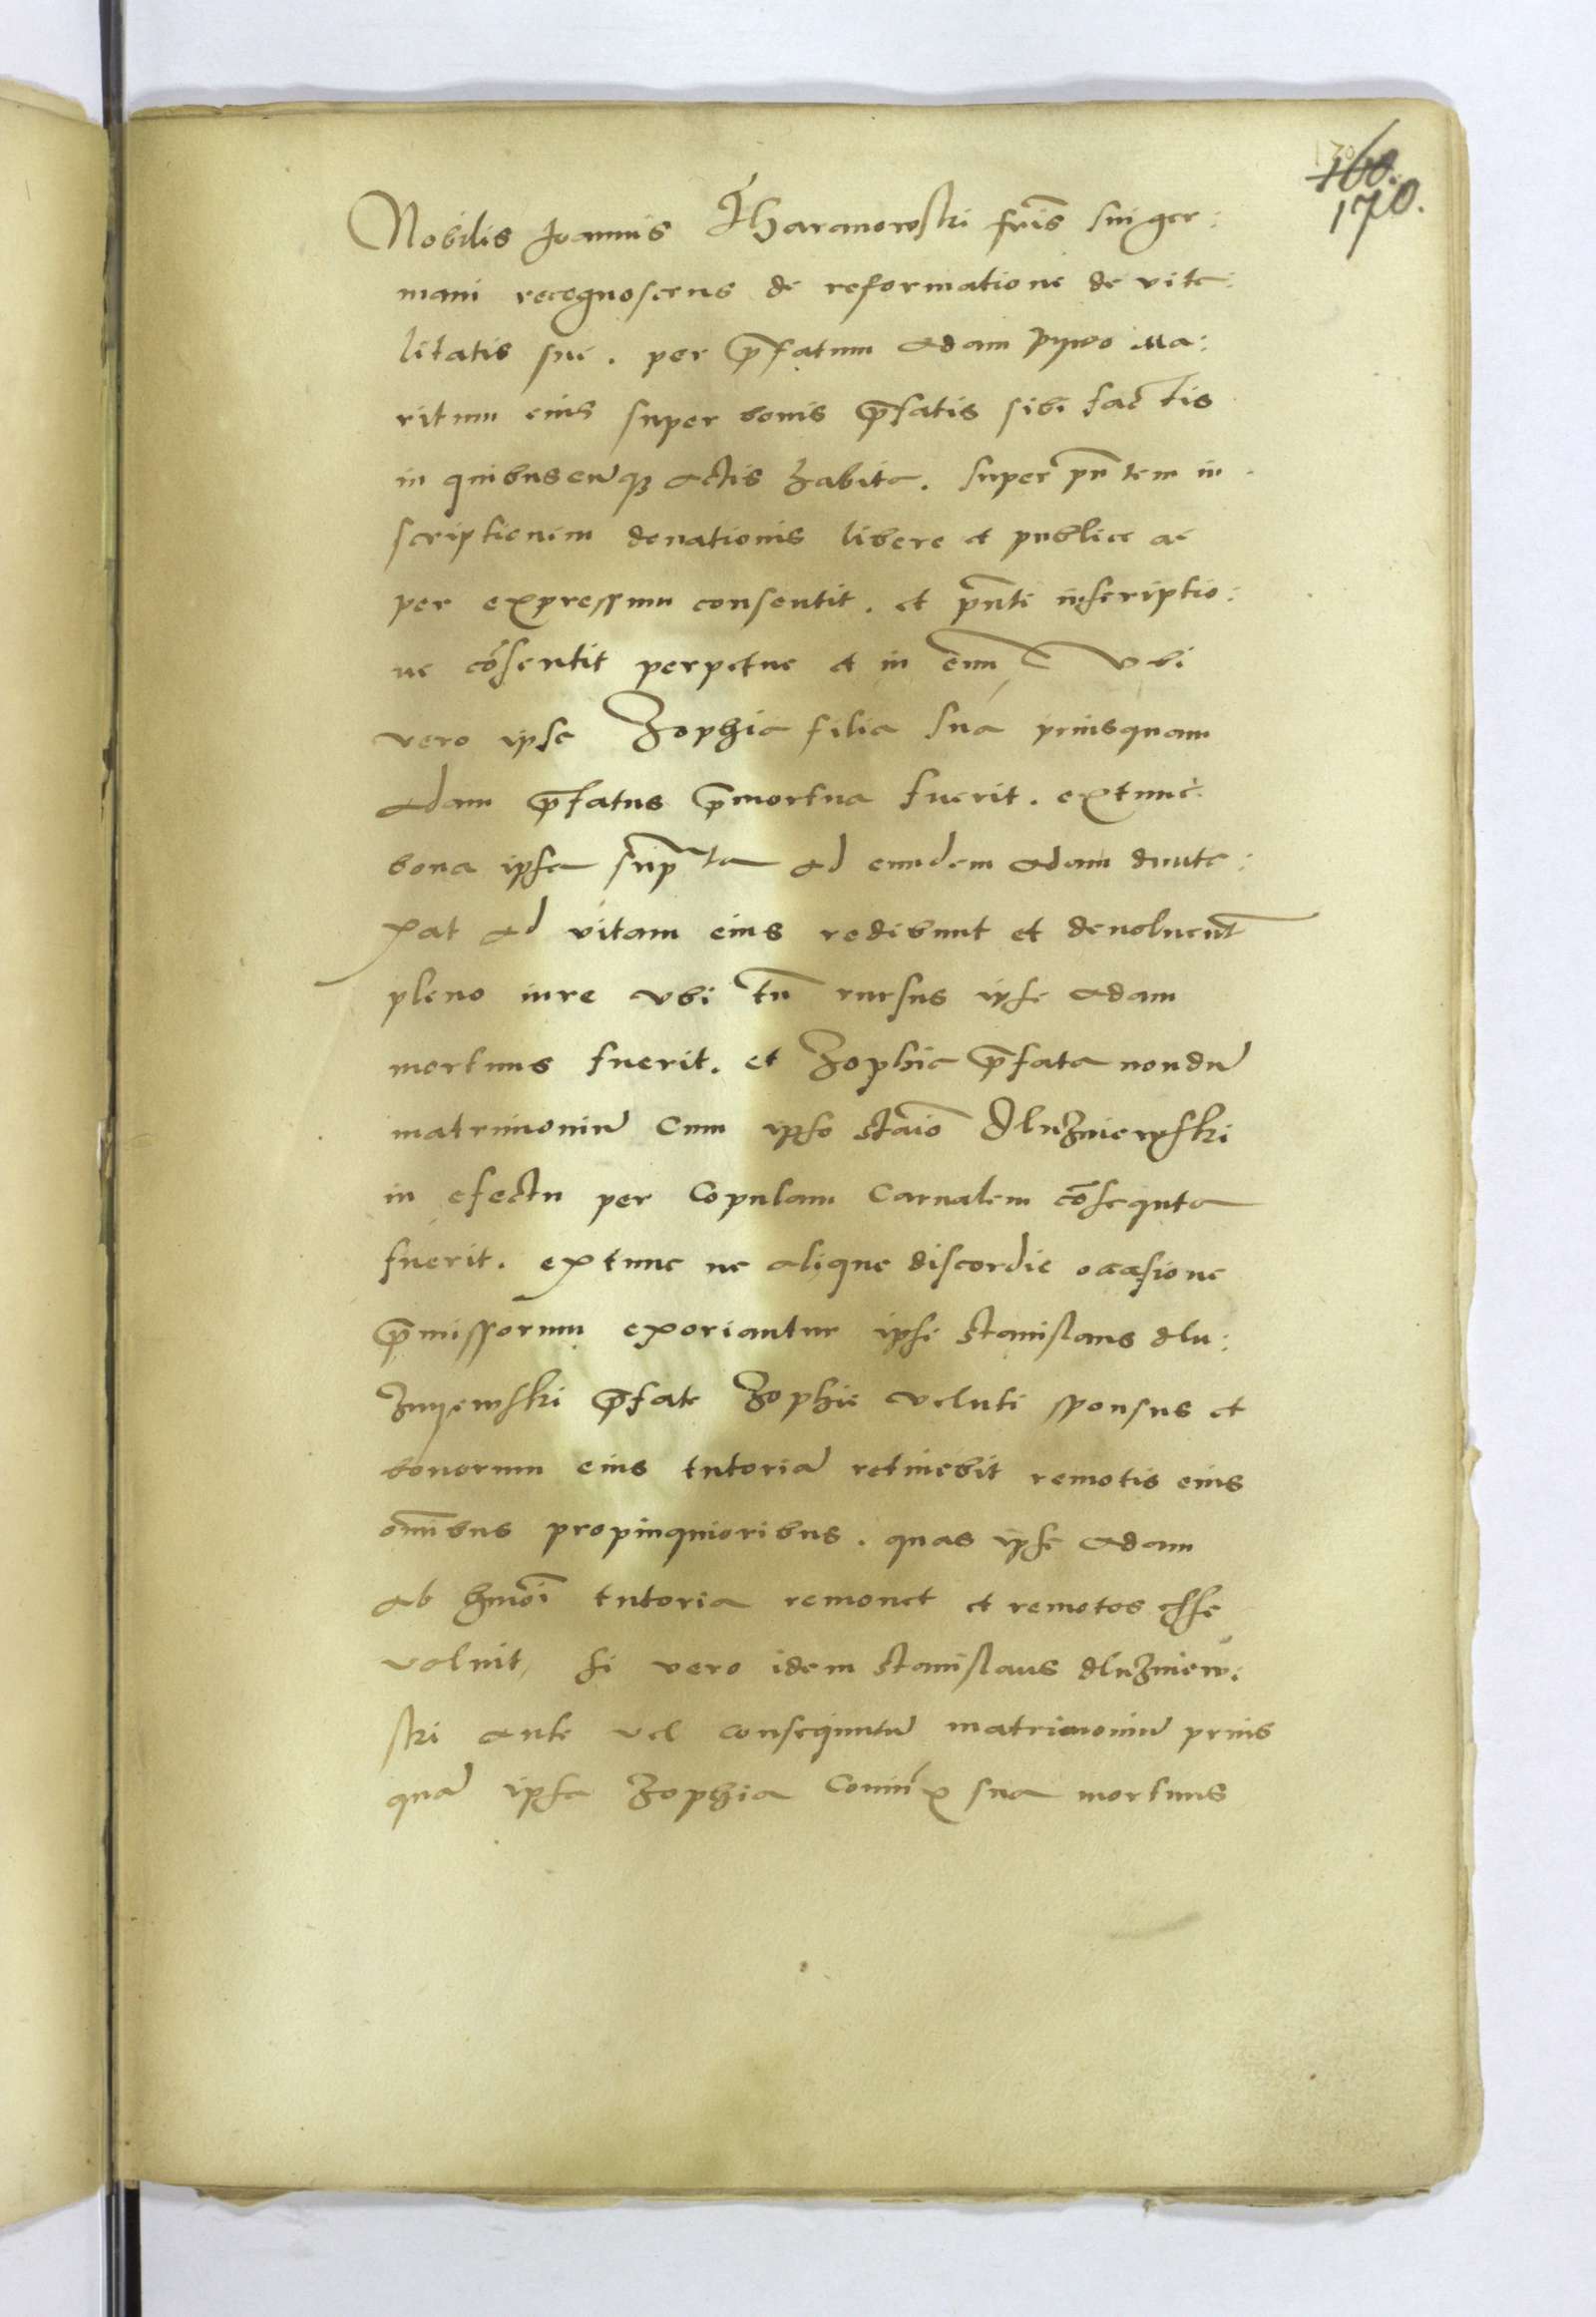 170
160.
170.
Nobilis Joannis Tharanowski fr̃is sui ger:
mani recognoscens de reformatione de vita:
litatis sue. per p̄fatum Adam Pywo Ma:
ritum eius super bonis p̄fatis sibi factis
in quibuscũqȝ actis habita. super pñtem in
scriptionem donationis libere et publice ac
per expressum consentit. et pñti inscriptio:
ne cõsentit perpetue et in eum Vbi
vero ipsa Zophia filia sua priusquam
Adam p̄fatus p̄mortua fuerit. extunc
bona ipsa sup̄ta ad eundem Adam dunta:
xat ad vitam eius redibunt et devolvent̃
pleno iure vbi tñ rursus ipse Adam
mortuus fuerit. et Zophia p̄fata nondũ
matrimoniũ cum ipso Stañio Dluzniewski
in efectu per Copulam Carnalem cõsequta
fuerit. extunc ne alique discordie occasione
p̄missorum exoriantur ipse Stanislaus dlu:
znyewski p̄fate Zophie veluti sponsus et
bonorum eius tutoriã retinebit remotis eius
om̃ibus propinquioribus. quas ipse Adam
ab hm̃oi tutoria remouet et remotos esse
voluit, si vero idem Stanislaus dluzniew:
ski ante vel consequutũ matrimoniũ prius
quã ipsa Zophia Coniũx sua mortuus